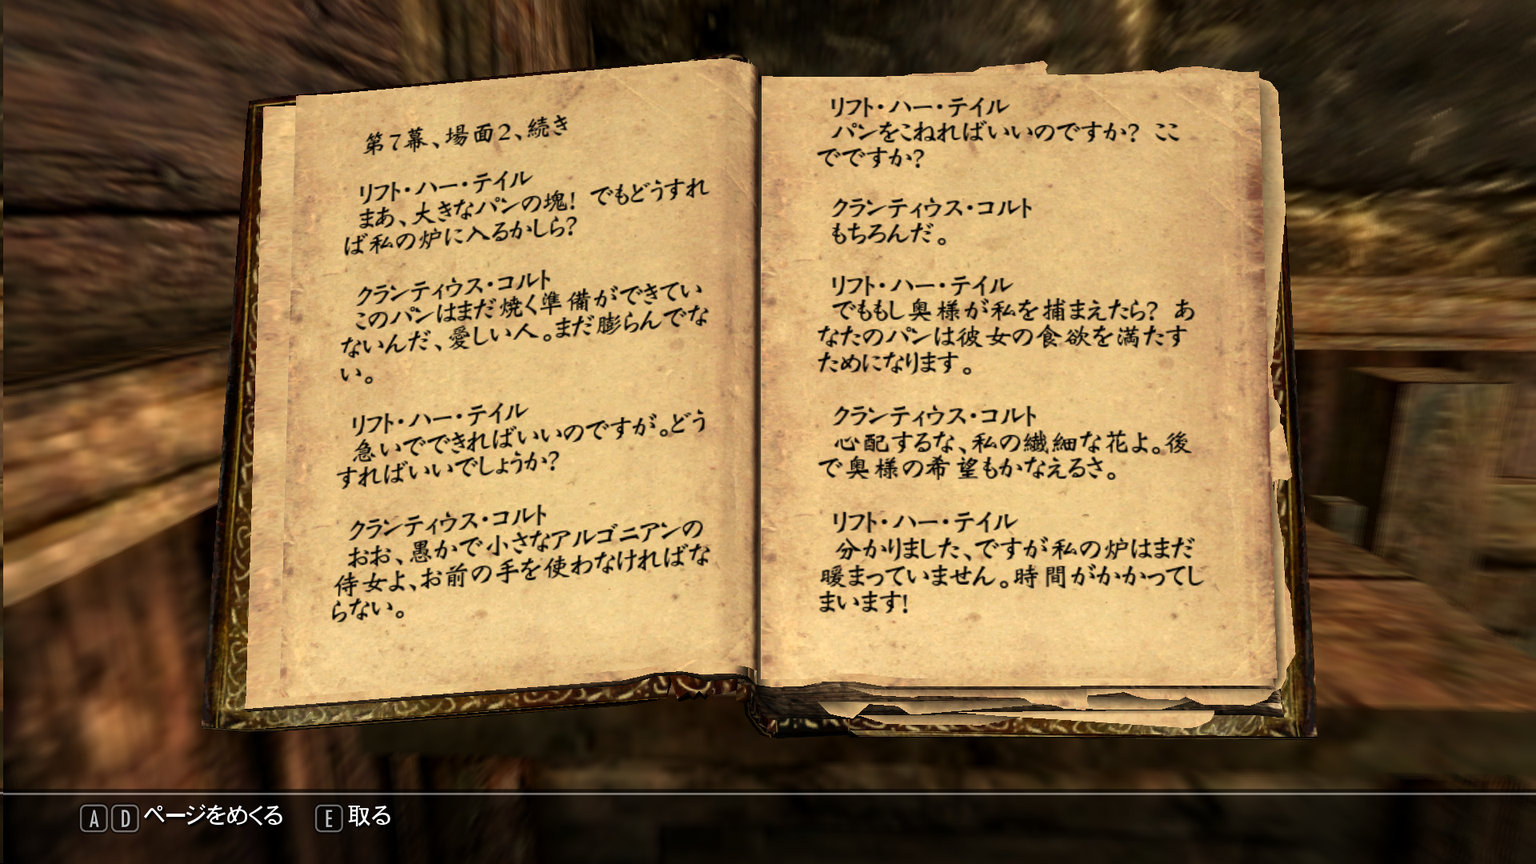 第7幕、場面2、続き
リフト・ハー・テイル
まあ、大きなパンの塊! でもどうすれ
ば私の炉に入るかしら?
クランティウス・コルト
このパンはまだ焼く準備ができてい
ないんだ、愛しい人。まだ膨らんでな
い。
リフト・ハー・テイル
急いでできればいいのですが。どう
すればいいでしょうか?
クランティウス・コルト
おお、愚かで小さなアルゴニアンの
侍女よ、お前の手を使わなければな
らない。
リフト・ハー・テイル
パンをこねればいいのですか? ここ
でですか?
クランティウス・コルト
もちろんだ。
リフト・ハー・テイル
でももし奥様が私を捕まえたら? あ
なたのパンは彼女の食欲を満たす
ためになります。
クランティウス・コルト
心配するな、私の繊細な花よ。後
で奥様の希望もかなえるさ。
リフト・ハー・テイル
分かりました、ですが私の炉はまだ
暖まっていません。時間がかかってし
まいます!
A D ページをめくる E 取る